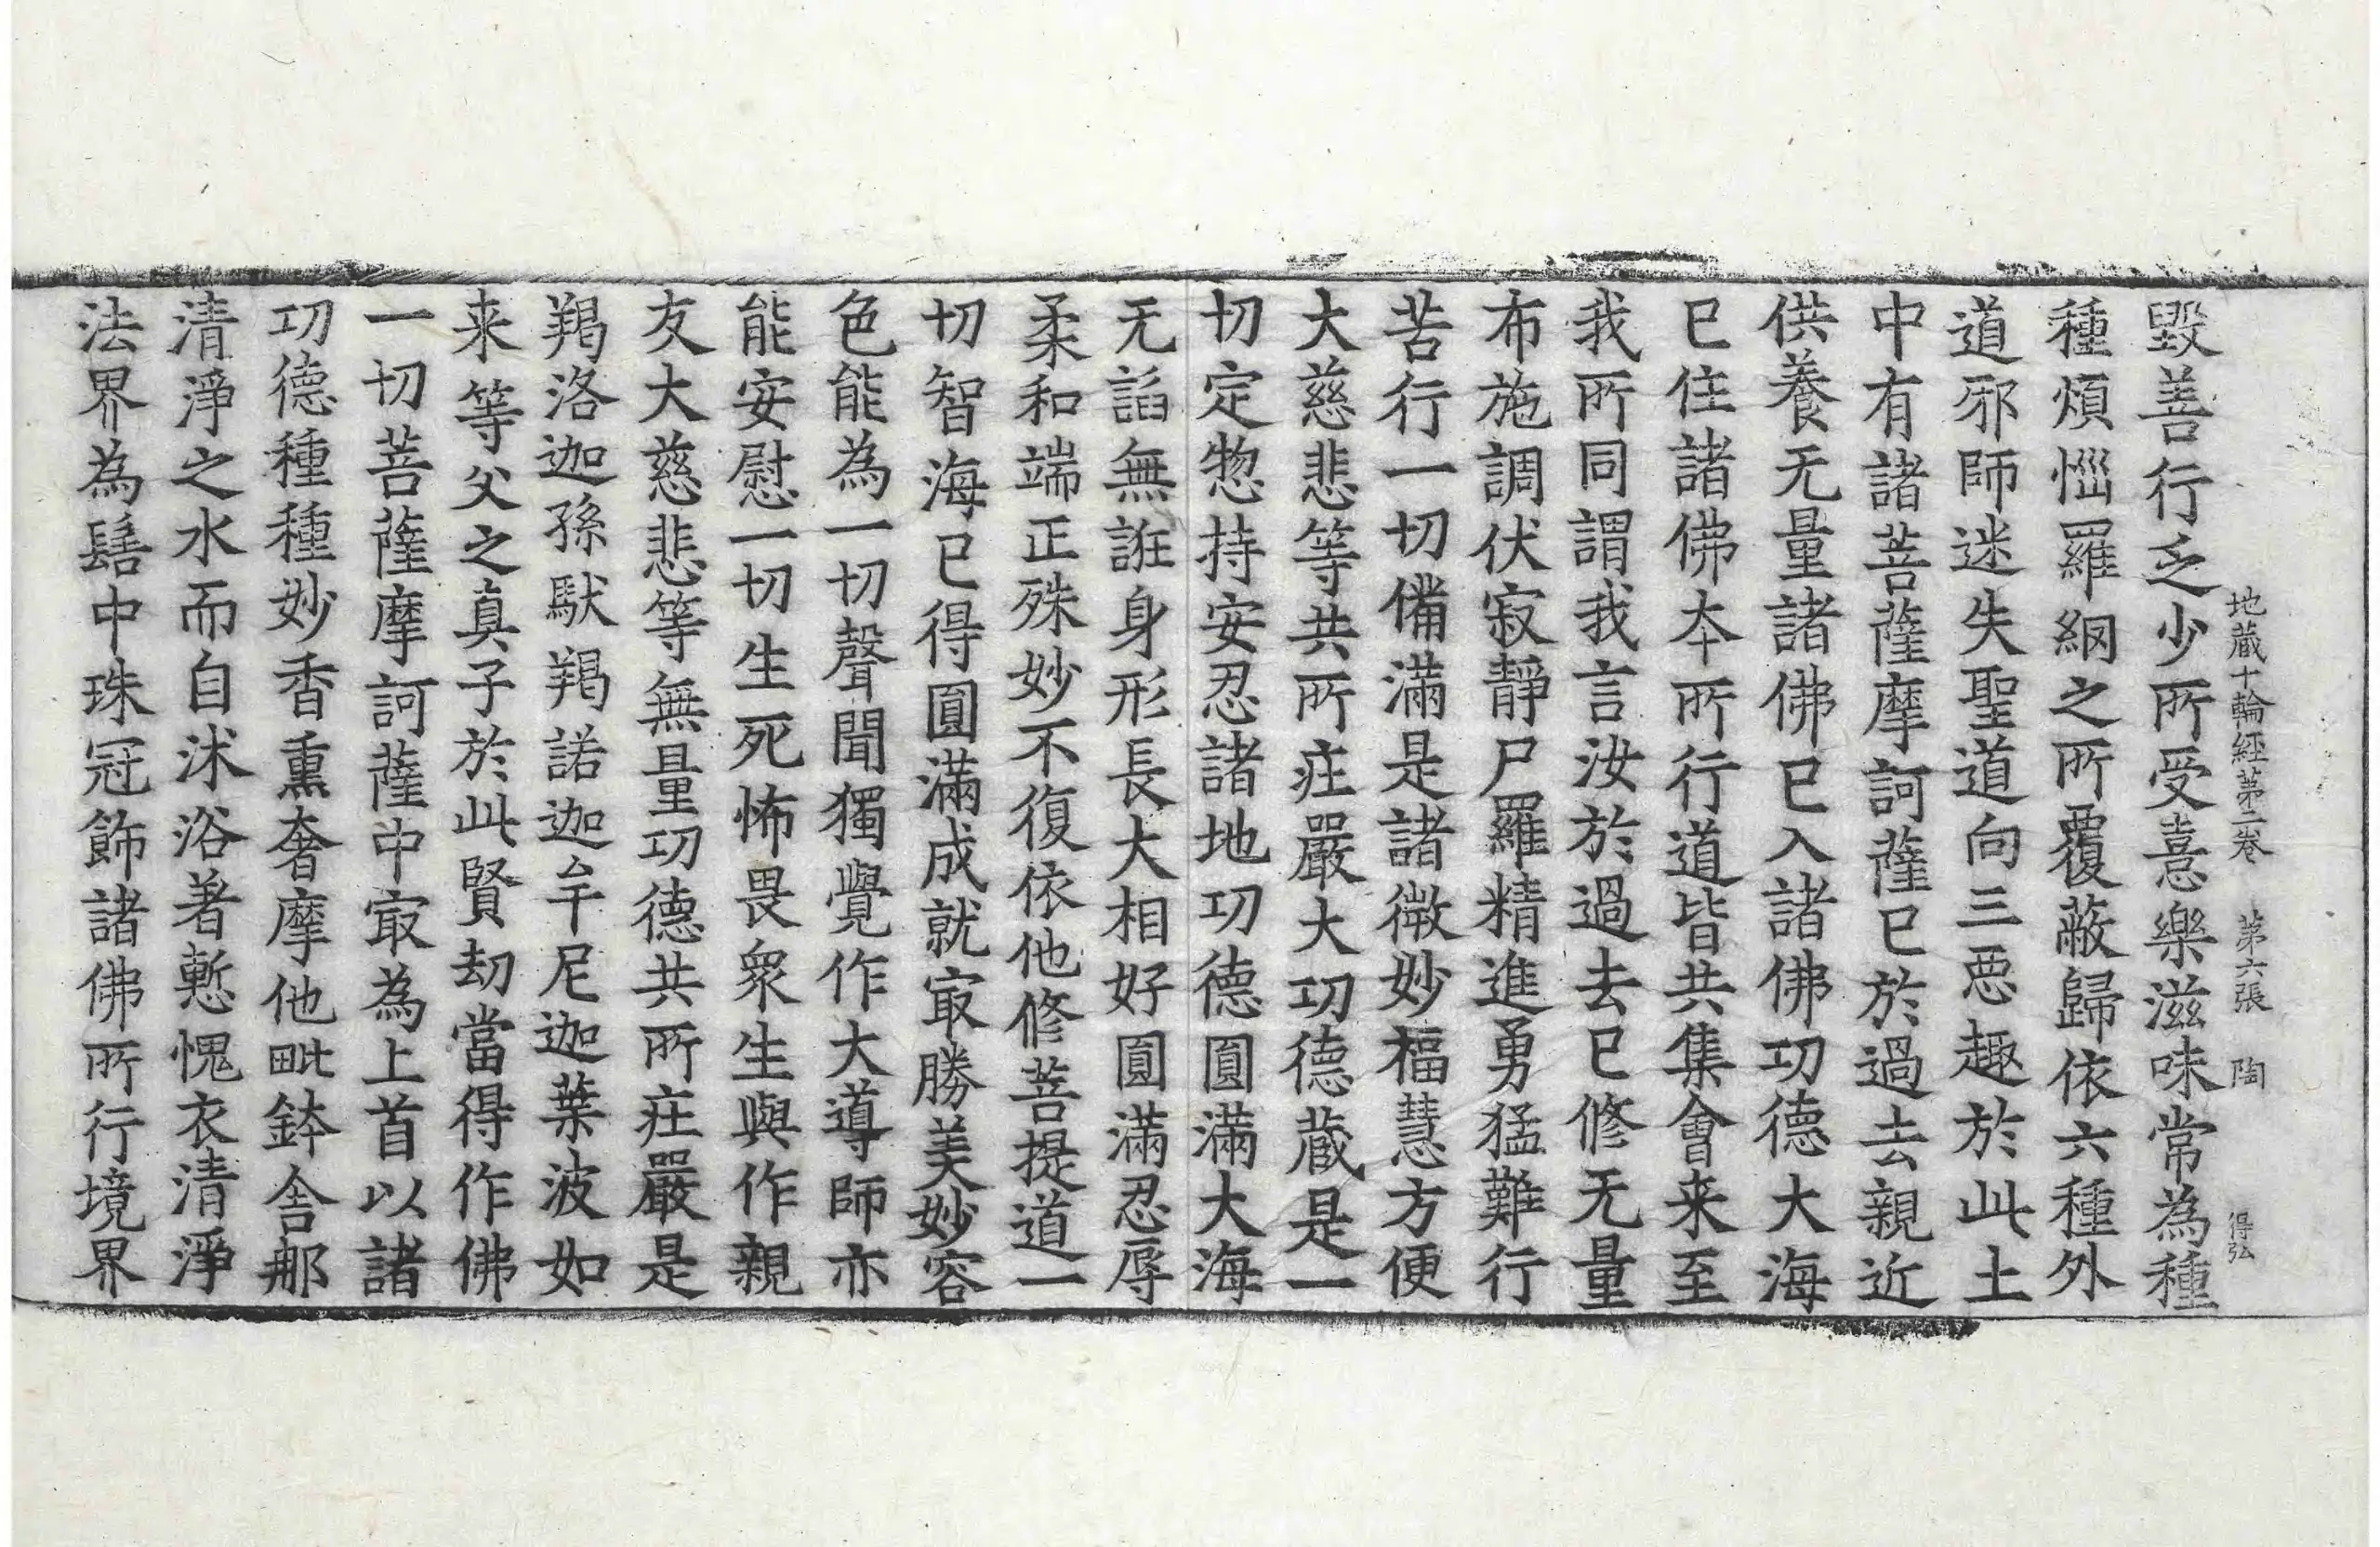 地蔵十輪経苐二卷 苐六張 陶 得弘
毀善行乏少所受憙樂滋味常為種
種煩惱羅網之所覆蔽歸依六種外
道邪師迷失聖道向三惡趣於此土
中有諸菩薩摩訶薩已於過去親近
供養无量諸佛已入諸佛功德大海
已住諸佛夲所行道皆共集會来至
我所同謂我言汝於過去已修无量
布施調伏寂靜尸羅精進勇猛難行
苦行一切備滿是諸微妙福慧方便
大慈悲等共所疘嚴大功德蔵是一
切定惣持安忍諸地功德圓滿大海
无諂無誑身形長大相好圓滿忍辱
柔和端正殊妙不復依他修菩提道一
切智海已得圓滿成就㝡勝美妙容
色能為一切聲聞獨覺作大導師亦
能安慰一切生死怖畏眾生與作親
友大慈悲等無量功德共所疘嚴是
羯洛迦孫馱羯諾迦牟尼迦葉波如
来等父之真子於此賢劫當得作佛
一切菩薩摩訶薩中㝡為上首以諸
功德種種妙香熏奢摩他毗鉢舍那
清淨之水而自沐浴著慙愧衣清淨
法界為髻中珠冠飾諸佛所行境界